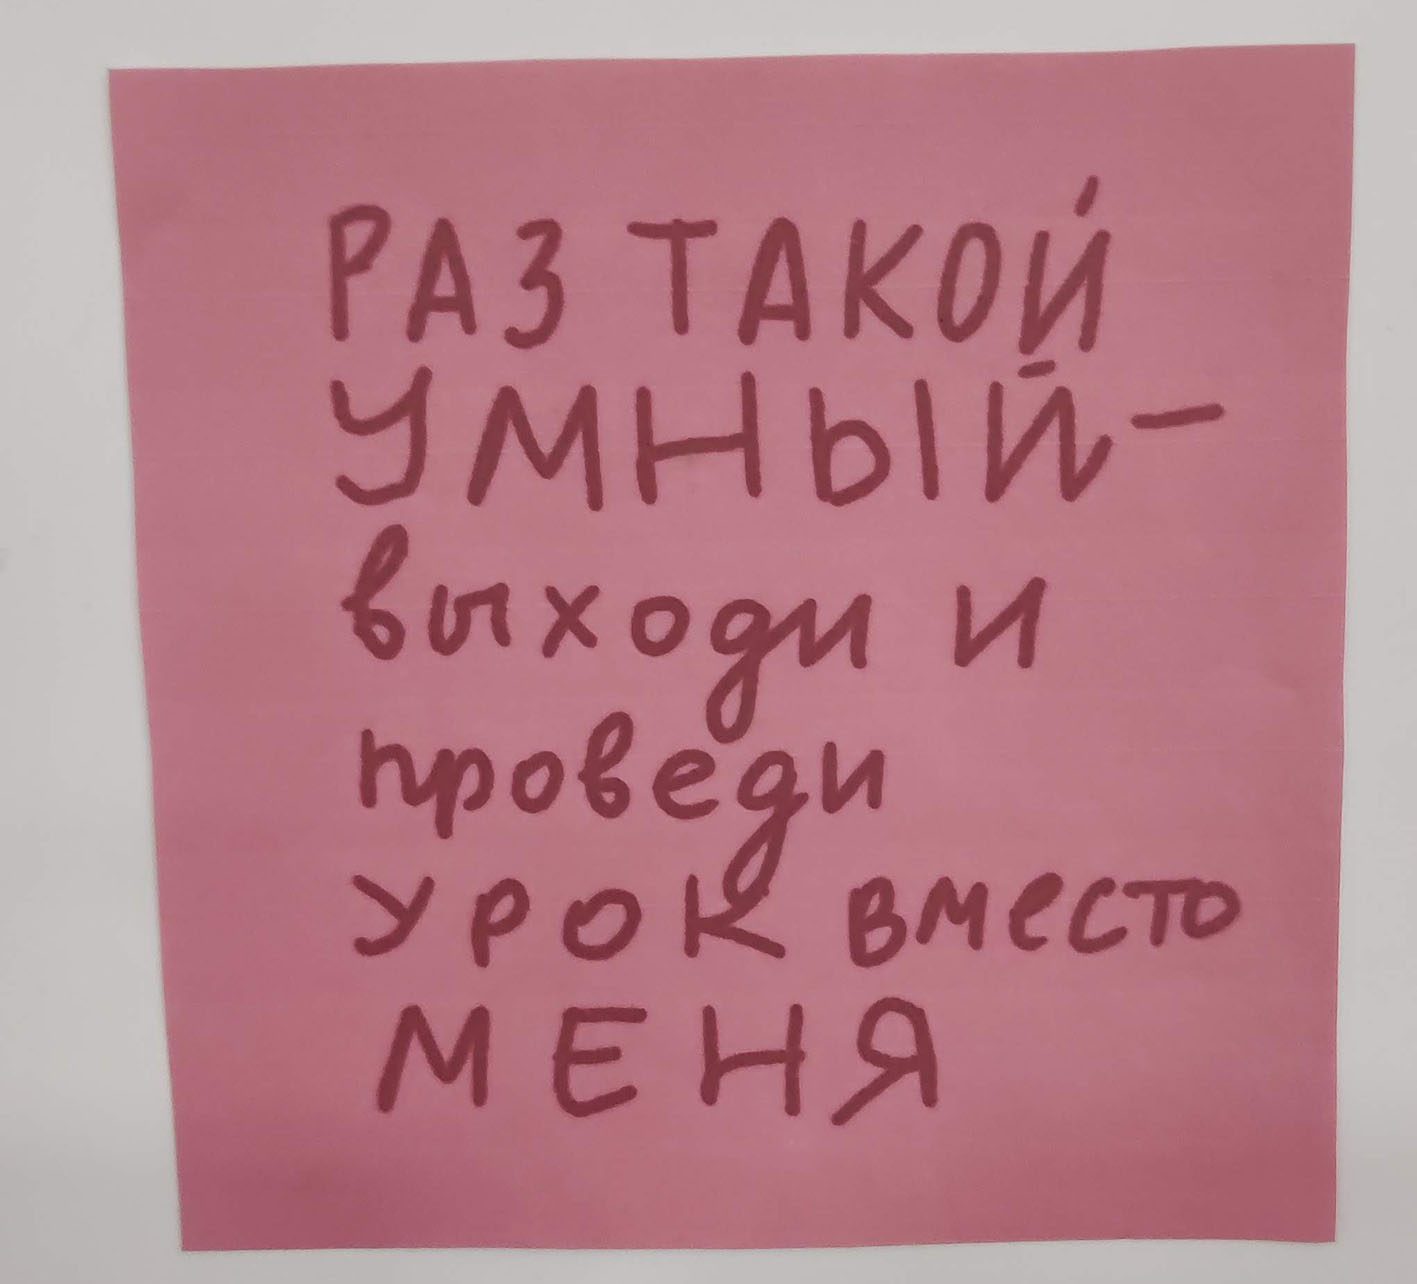 РАЗ ТАКОЙ
УМНЫЙ -
выходи и
проведи
урок вместо
МЕНЯ